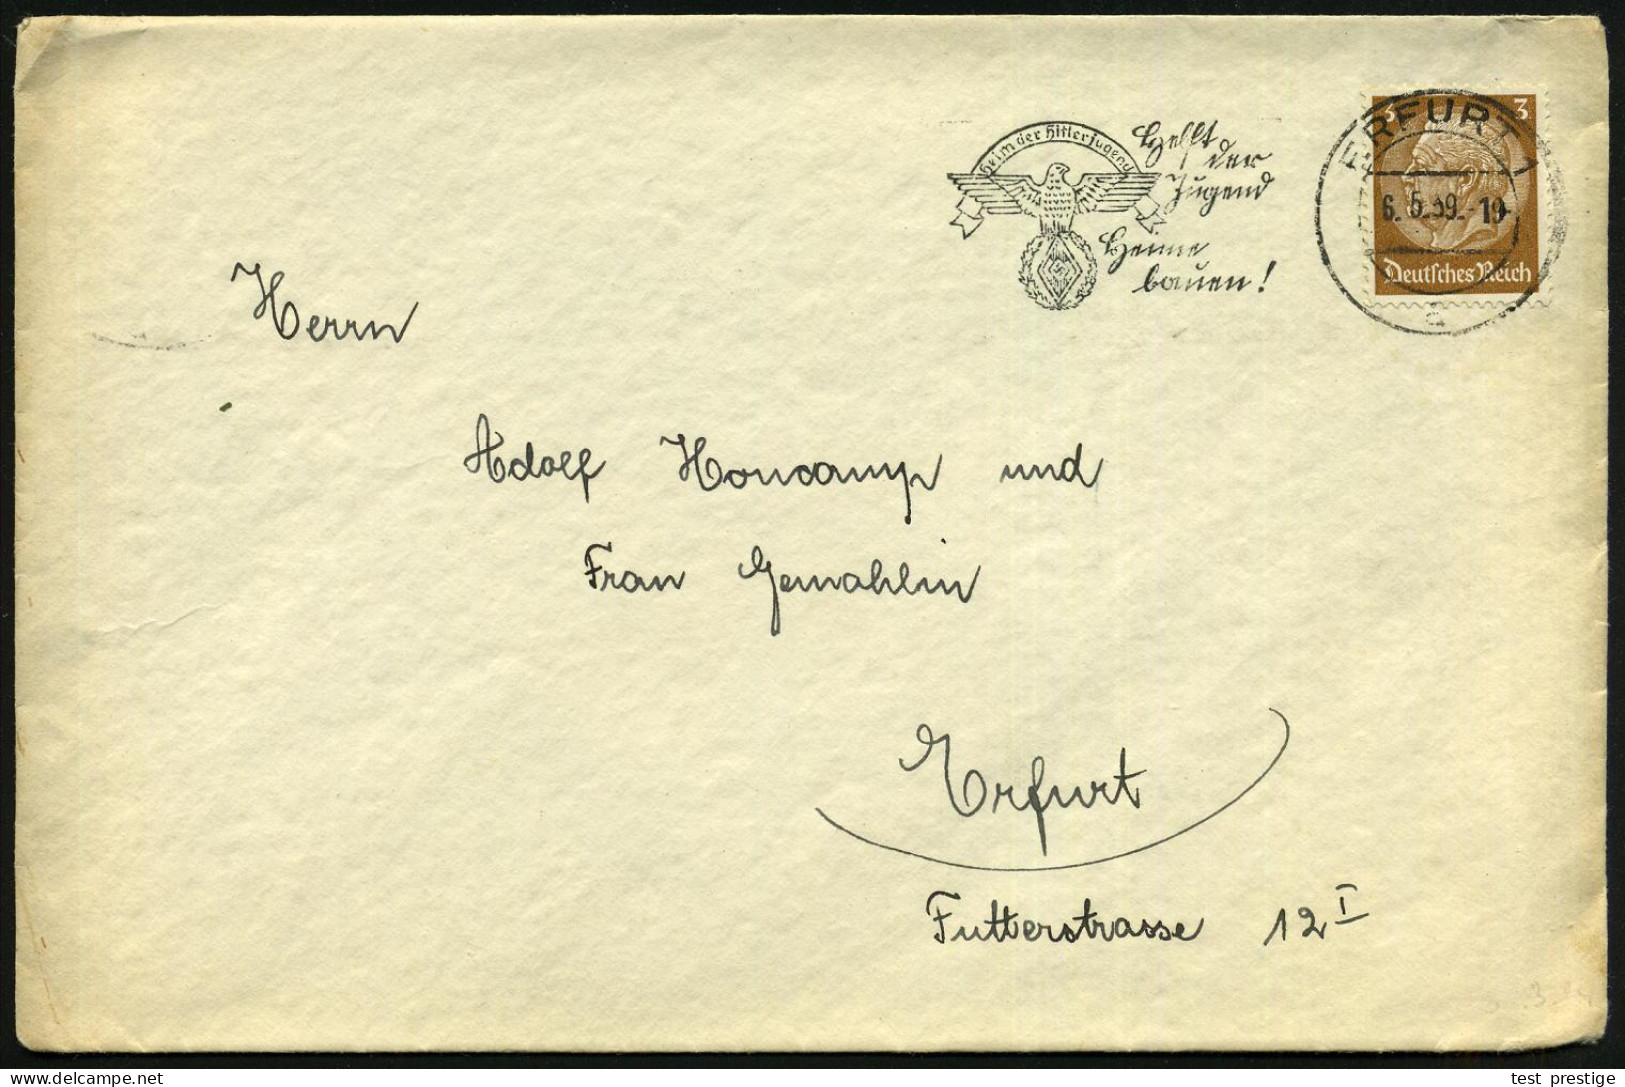 Heim der Hitlerjugend
Helft
der
Jugend
Heime
bauen!
ERFURT 1
6.5.39.-19
a
3 3
Deutsches Reich
Herrn
Adolf Honcamp und
Frau Gemahlin
Erfurt
Futterstrasse 12 I
test prestige